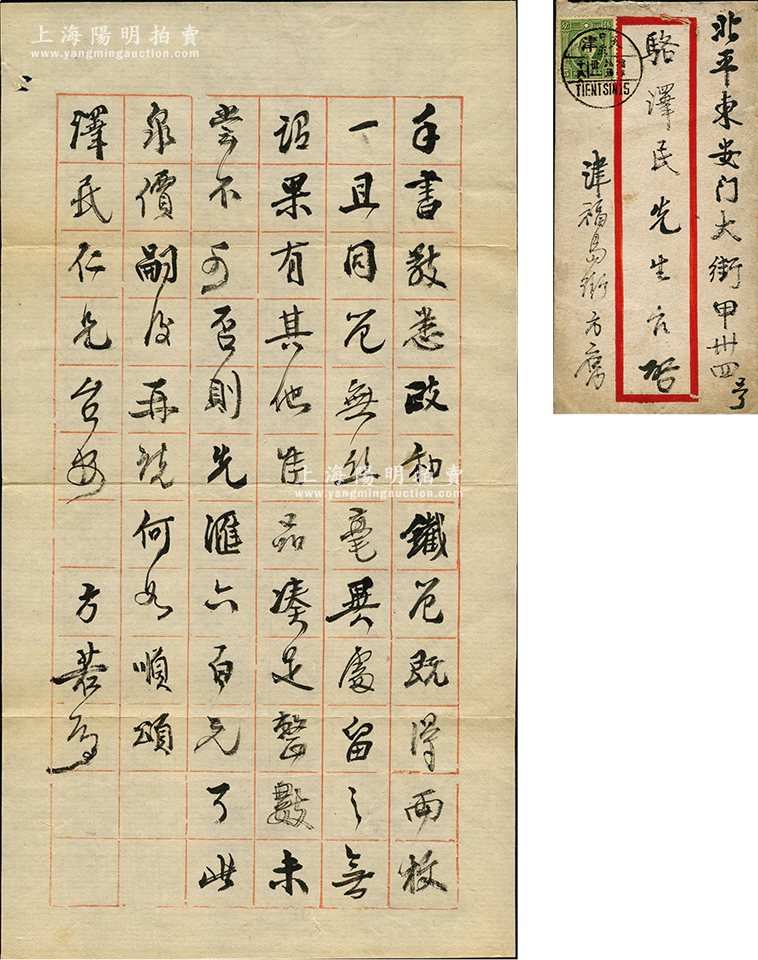 上海陽明拍賣
www.yangmingauction.com
手書敬悉政和鐵范既得兩枚
一且同范無絲毫異處留之無
謂果有其他佳品湊足整數未
嘗不可否則先匯六百元了此
泉價嗣後再說何如順頌
澤民仁兄台安 方若
上海陽明拍賣
www.yangmingauction.com
北平東安门大街甲卅四号
駱澤民先生台啓
津福島街方寓
津
TIENTSIN 15